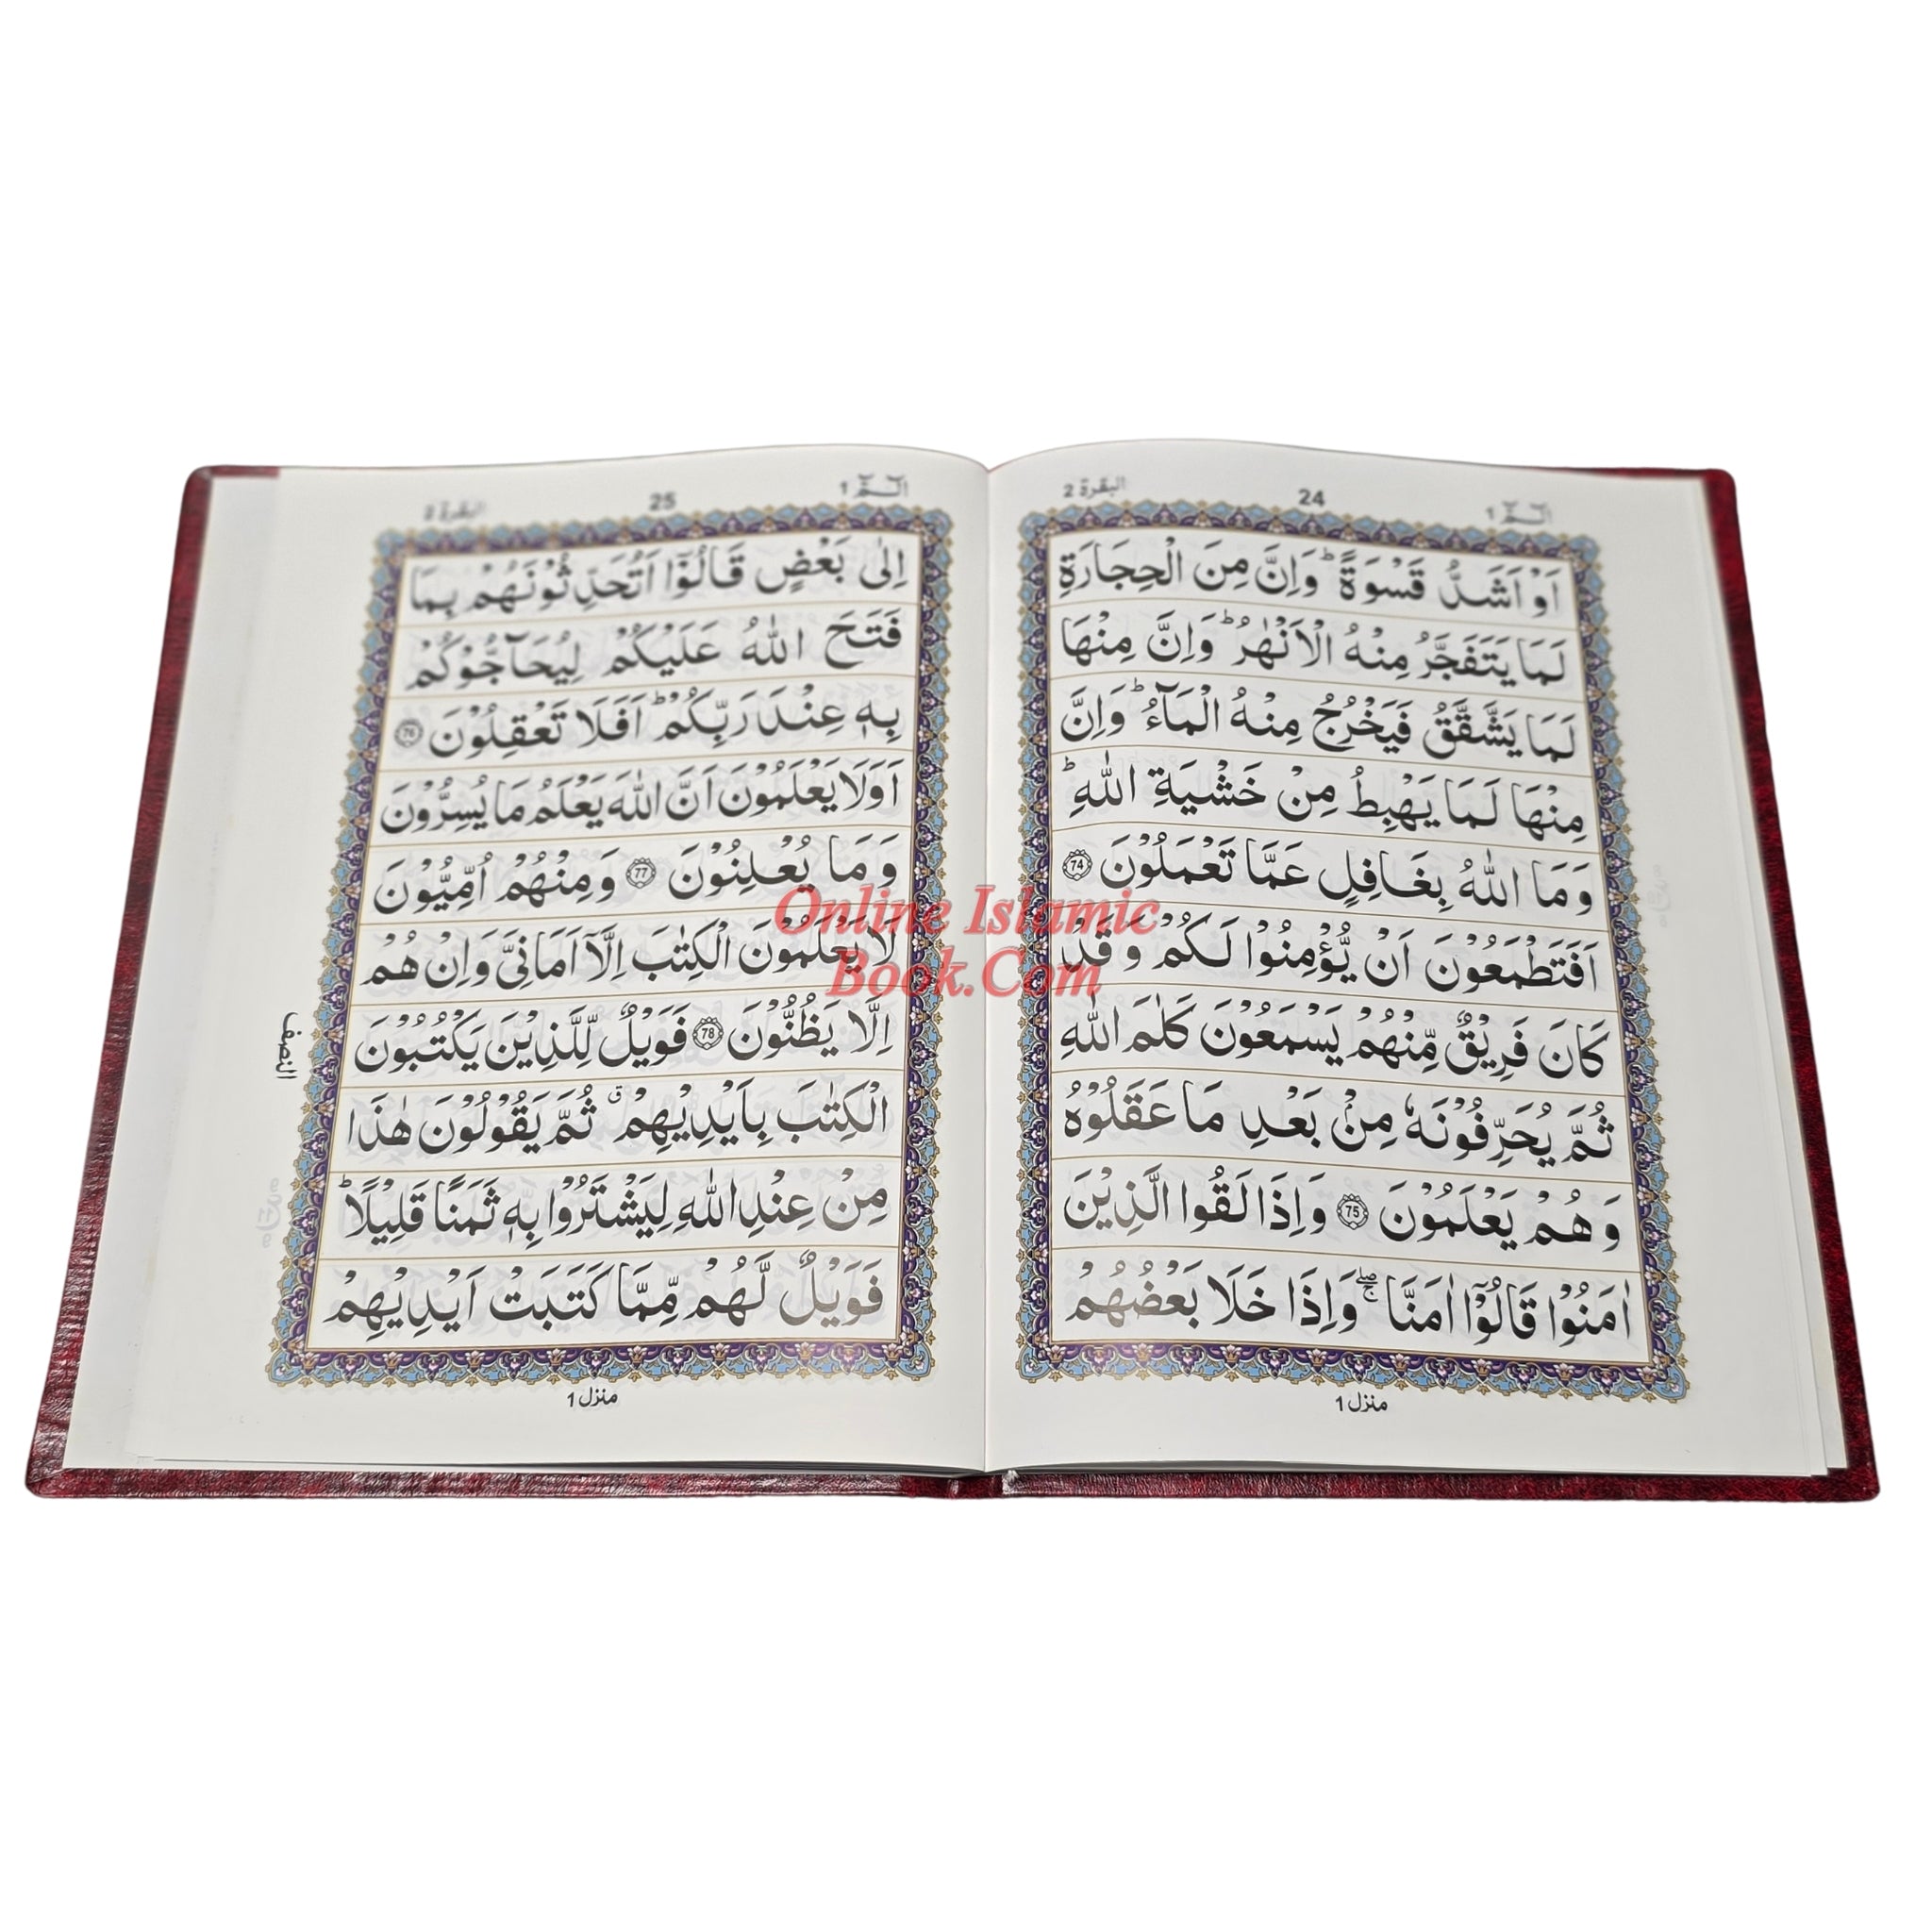 الٓـمّٓ 1
24
البقرة 2
اَوْ اَشَدُّ قَسْوَةً ؕ وَاِنَّ مِنَ الْحِجَارَةِ
لَمَا يَتَفَجَّرُ مِنْهُ الْاَنْهٰرُ ؕ وَاِنَّ مِنْهَا
لَمَا يَشَّقَّقُ فَيَخْرُجُ مِنْهُ الْمَآءُ ؕ وَاِنَّ
مِنْهَا لَمَا يَهْبِطُ مِنْ خَشْيَةِ اللّٰهِ ؕ
وَمَا اللّٰهُ بِغَافِلٍ عَمَّا تَعْمَلُوْنَ 74
اَفَتَطْمَعُوْنَ اَنْ يُّؤْمِنُوْا لَكُمْ وَقَدْ
كَانَ فَرِيْقٌ مِّنْهُمْ يَسْمَعُوْنَ كَلٰمَ اللّٰهِ
ثُمَّ يُحَرِّفُوْنَهٗ مِنْۢ بَعْدِ مَا عَقَلُوْهُ
وَهُمْ يَعْلَمُوْنَ 75 وَاِذَا لَقُوا الَّذِيْنَ
اٰمَنُوْا قَالُوْٓا اٰمَنَّا ۖۚ وَاِذَا خَلَا بَعْضُهُمْ
منزل 1
الٓـمّٓ 1
25
البقرة 2
اِلٰى بَعْضٍ قَالُوْٓا اَتُحَدِّثُوْنَهُمْ بِمَا
فَتَحَ اللّٰهُ عَلَيْكُمْ لِيُحَآجُّوْكُمْ
بِهٖ عِنْدَ رَبِّكُمْ ؕ اَفَلَا تَعْقِلُوْنَ 76
اَوَلَا يَعْلَمُوْنَ اَنَّ اللّٰهَ يَعْلَمُ مَا يُسِرُّوْنَ
وَمَا يُعْلِنُوْنَ 77 وَمِنْهُمْ اُمِّيُّوْنَ
لَا يَعْلَمُوْنَ الْكِتٰبَ اِلَّآ اَمَانِىَّ وَاِنْ هُمْ
اِلَّا يَظُنُّوْنَ 78 فَوَيْلٌ لِّلَّذِيْنَ يَكْتُبُوْنَ
الْكِتٰبَ بِاَيْدِيْهِمْ ۤ ثُمَّ يَقُوْلُوْنَ هٰذَا
مِنْ عِنْدِ اللّٰهِ لِيَشْتَرُوْا بِهٖ ثَمَنًا قَلِيْلًا ؕ
فَوَيْلٌ لَّهُمْ مِّمَّا كَتَبَتْ اَيْدِيْهِمْ
النصف
منزل 1
Online Islamic
Book.Com